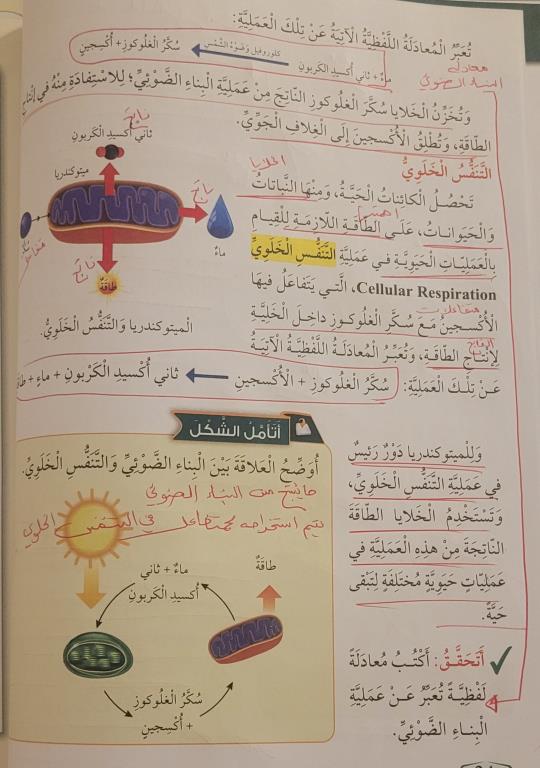 تُعَبِّرُ الْمُعادَلَةُ اللَّفْظِيَّةُ الْآتِيَةُ عَنْ تِلْكَ الْعَمَلِيَّةِ:
ماءٌ + ثاني أُكسيدِ الْكَربونِ
كلوروفيل وَضَوْءُ الشَّمْسِ
سُكَّرُ الغلوكوز + أُكْسِجين
معادلة
البناء الضوئي
وَتُخَزِّنُ الْخَلايا سُكَّرَ الْغلوكوزِ النّاتِجَ مِنْ عَمَلِيَّةِ الْبِناءِ الضَّوْئِيِّ؛ لِلِاسْتِفادَةِ مِنْهُ في إنْتاجِ
الطّاقَةِ، وَتُطْلِقُ الْأُكْسجينَ إِلَى الْغِلافِ الْجَوِّيِّ.
التَّنَفُّسُ الْخَلَوِيُّ
الخلايا
تَحْصُلُ الْكائِناتُ الْحَيَّةُ، وَمِنْهَا النَّباتاتُ
وَالْحَيَواناتُ، عَلَى الطّاقَةِ اللّازِمَةِ لِلْقِيامِ
بِالْعَمَلِيّاتِ الْحَيَوِيَّةِ في عَمَلِيَّةِ التَّنَفُّسِ الْخَلَوِيِّ
Cellular Respiration، الَّتي يَتَفاعَلُ فيهَا
الْأُكْسجينُ مَعَ سُكَّرِ الْغلوكوزِ داخِلَ الْخَلِيَّةِ
لِإِنْتاجِ الطّاقَةِ، وَتُعَبِّرُ الْمُعادَلَةُ اللَّفْظِيَّةُ الْآتِيَةُ
عَنْ تِلْكَ الْعَمَلِيَّةِ: سُكَّرُ الْغلوكوزِ + الْأُكْسجين
ثاني أُكْسيدِ الْكَرْبونِ + ماء + طاقة
ناتج
ثاني أُكسيدِ الْكَربونِ
ميتوكندريا
ناتج
ماءٌ
ناتج
طاقَةٌ
الْميتوكندريا وَالتَّنَفُّسُ الْخَلَوِيُّ.
وَلِلْميتوكندريا دَوْرٌ رَئيسٌ
في عَمَلِيَّةِ التَّنَفُّسِ الْخَلَوِيِّ،
وَتَسْتَخْدِمُ الْخَلايا الطّاقَةَ
النّاتِجَةَ مِنْ هذِهِ الْعَمَلِيَّةِ في
عَمَلِيّاتٍ حَيَوِيَّةٍ مُخْتَلِفَةٍ لِتَبْقى
حَيَّةً.
أَتَحَقَّقُ: أَكْتُبُ مُعادَلَةً
لَفْظِيَّةً تُعَبِّرُ عَنْ عَمَلِيَّةِ
الْبِناءِ الضَّوْئِيِّ.
أَتَأَمَّلُ الشَّكْلَ
أُوَضِّحُ الْعَلاقَةَ بَيْنَ الْبِناءِ الضَّوْئِيِّ وَالتَّنَفُّسِ الْخَلَوِيِّ.
ما ينتج من البناء الضوئي
يتم استخدامه في التنفس الخلوي
طاقَةٌ
ماءٌ + ثاني
أُكسيدِ الْكَربونِ
سُكَّرُ الْغلوكوزِ
+ أُكْسِجين